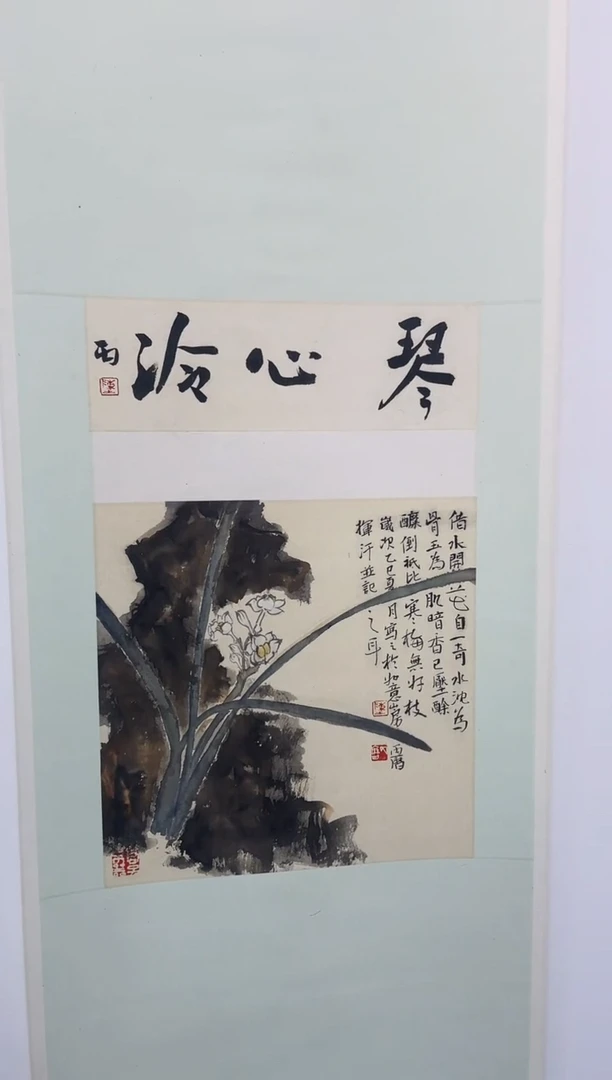 琴心泠
丙
借水開花自一奇水沈為
骨玉為肌暗香已壓酴
醾倒祇比寒梅無好枝
歲次乙巳夏月寫之於如意山房 丙
揮汗並記之耳